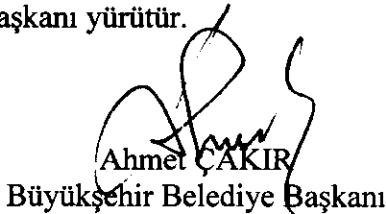 aşkanı yürütür.
Ahmet ÇAKIR
Büyükşehir Belediye Başkanı